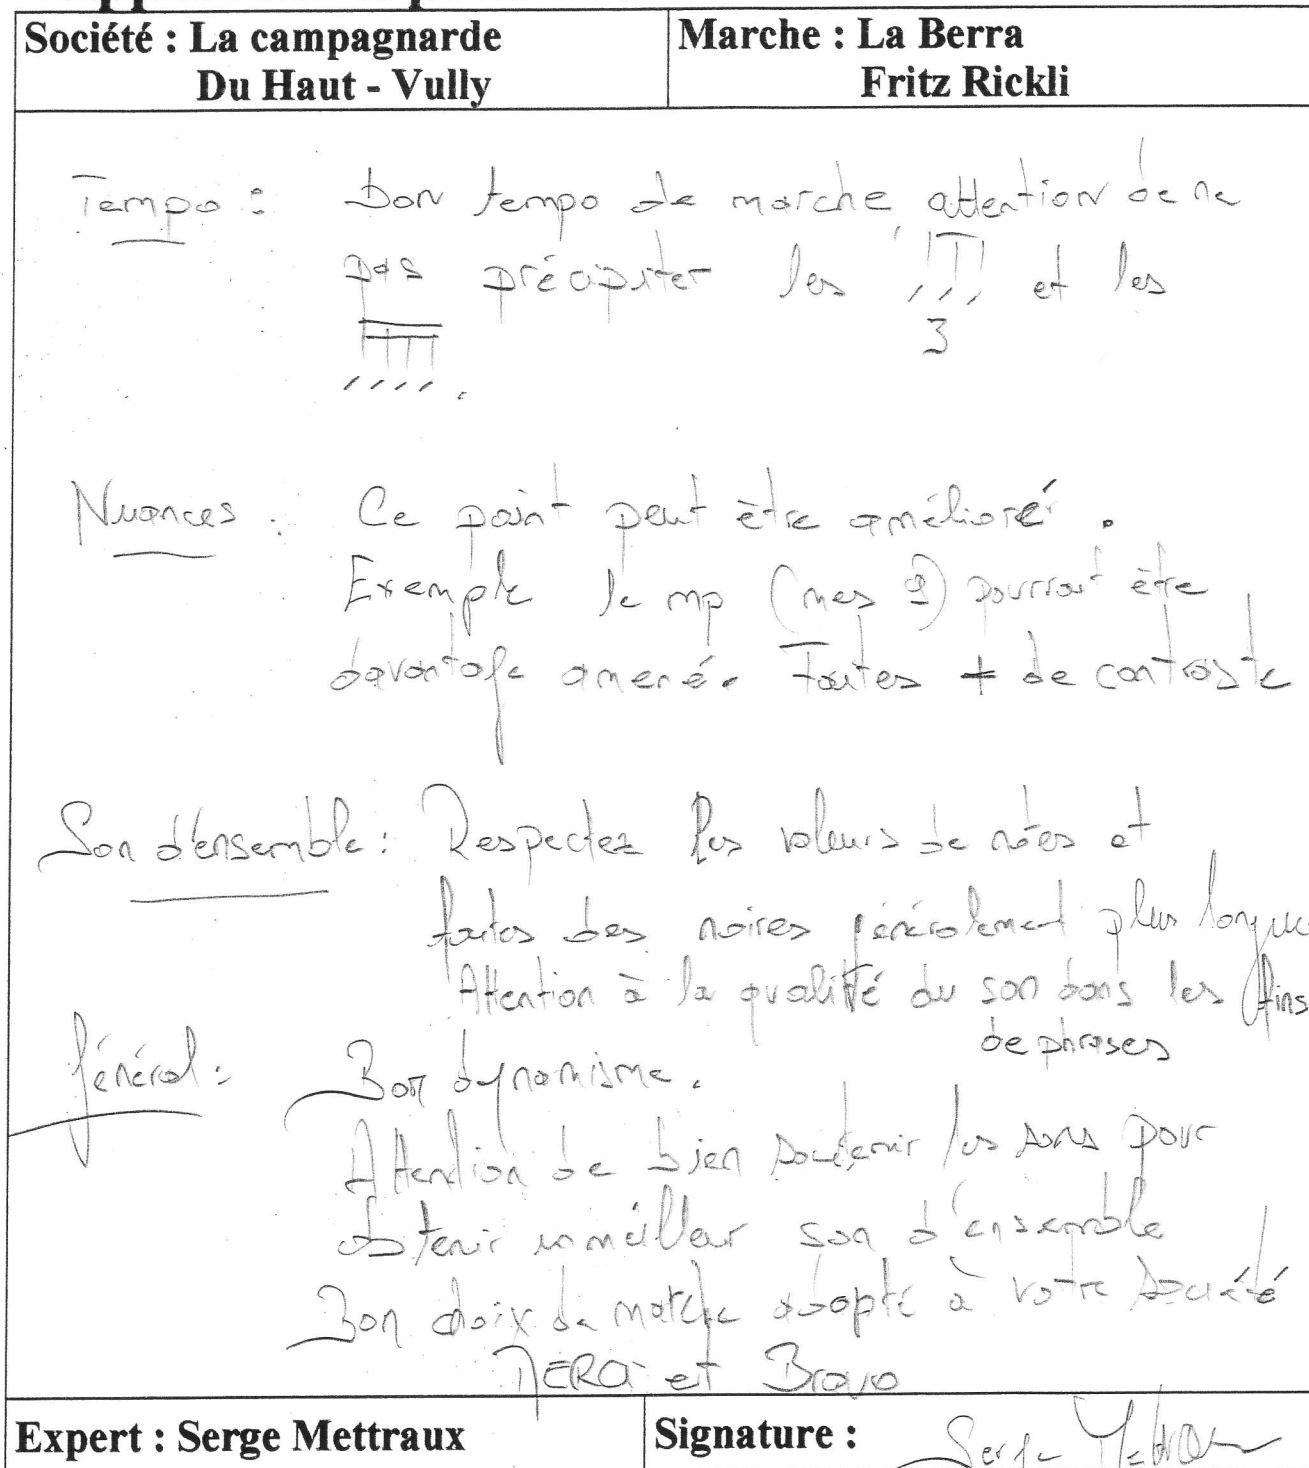 Société : La campagnarde
Du Haut - Vully
Marche : La Berra
Fritz Rickli
Tempo : bon tempo de marche, attention de ne
pas précipiter les 3 et les
Nuances : Ce point peut être amélioré.
Exemple le mp (mes 9) pourrait être
davantage amené. Faites + de contraste
Son d'ensemble : Respectez les valeurs de notes et
faites des noires généralement plus longues
Attention à la qualité du son dans les fins
de phrases
général : Bon dynamisme.
Attention de bien soutenir les sons pour
obtenir un meilleur son d'ensemble
Bon choix de marche adapté à votre société
MERCI et Bravo
Expert : Serge Mettraux
Signature : Serge Mettraux